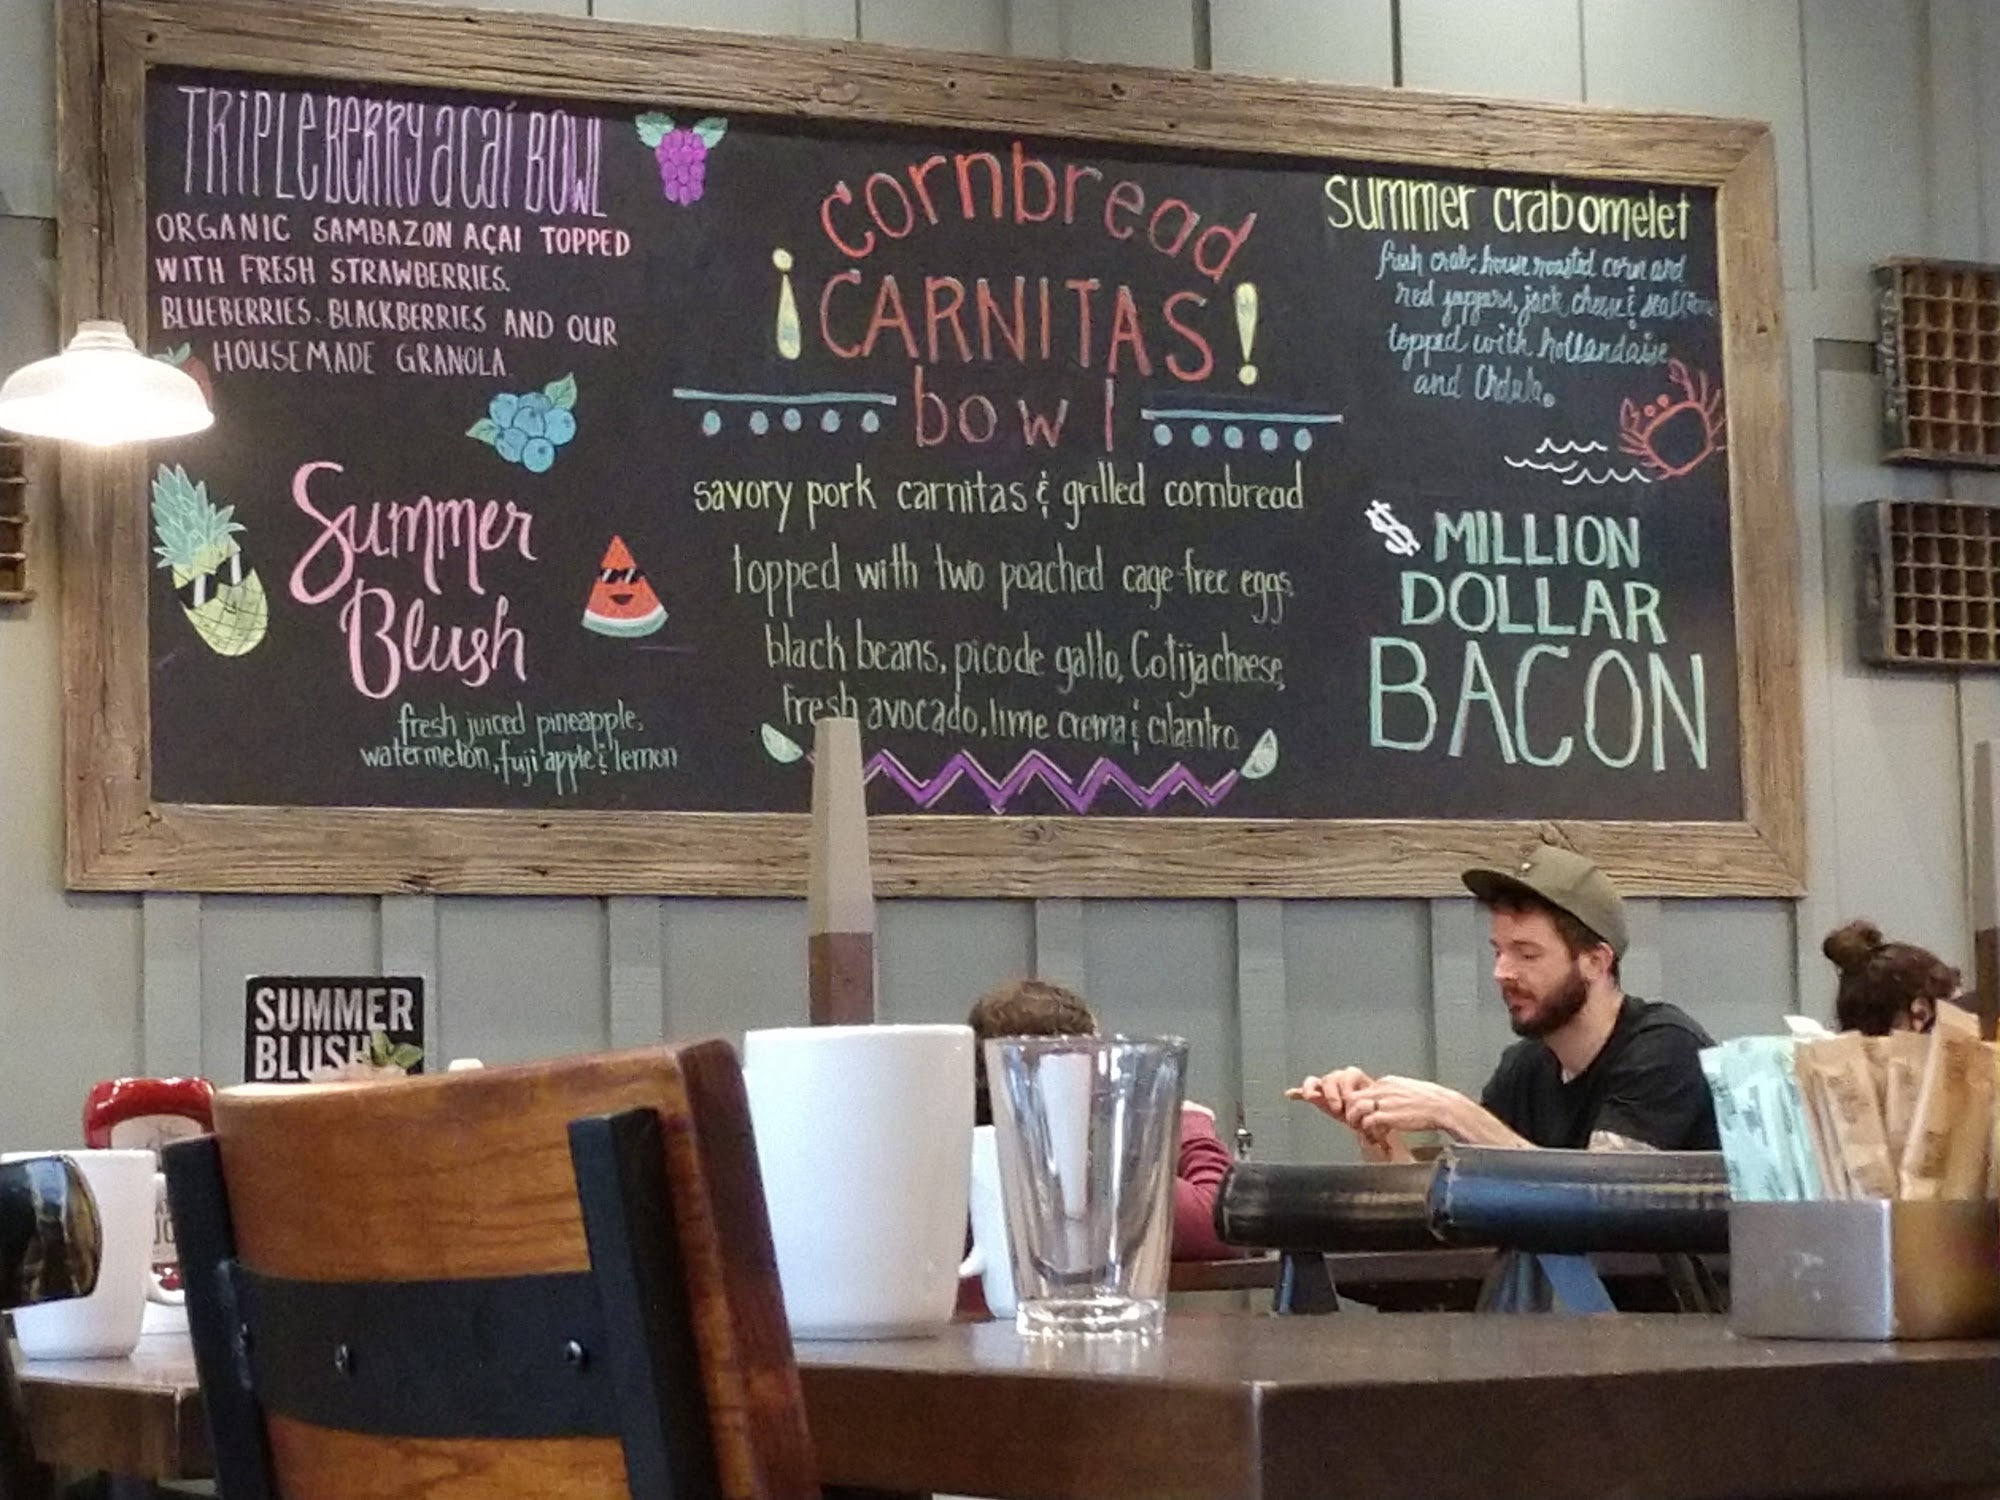 TRIPLE BERRY açaí BOWL
ORGANIC SAMBAZON AÇAI TOPPED
WITH FRESH STRAWBERRIES,
BLUEBERRIES, BLACKBERRIES AND OUR
HOUSEMADE GRANOLA
Summer
Blush
fresh juiced pineapple,
watermelon, fuji apple & lemon
cornbread
¡CARNITAS!
bowl
savory pork carnitas & grilled cornbread
topped with two poached cage-free eggs,
black beans, pico de gallo, Cotija cheese,
fresh avocado, lime crema & cilantro
summer crab omelet
fresh crab, house roasted corn and
red peppers, jack cheese & scallions
topped with hollandaise
and Cholula.
$ MILLION
DOLLAR
BACON
SUMMER
BLUSH